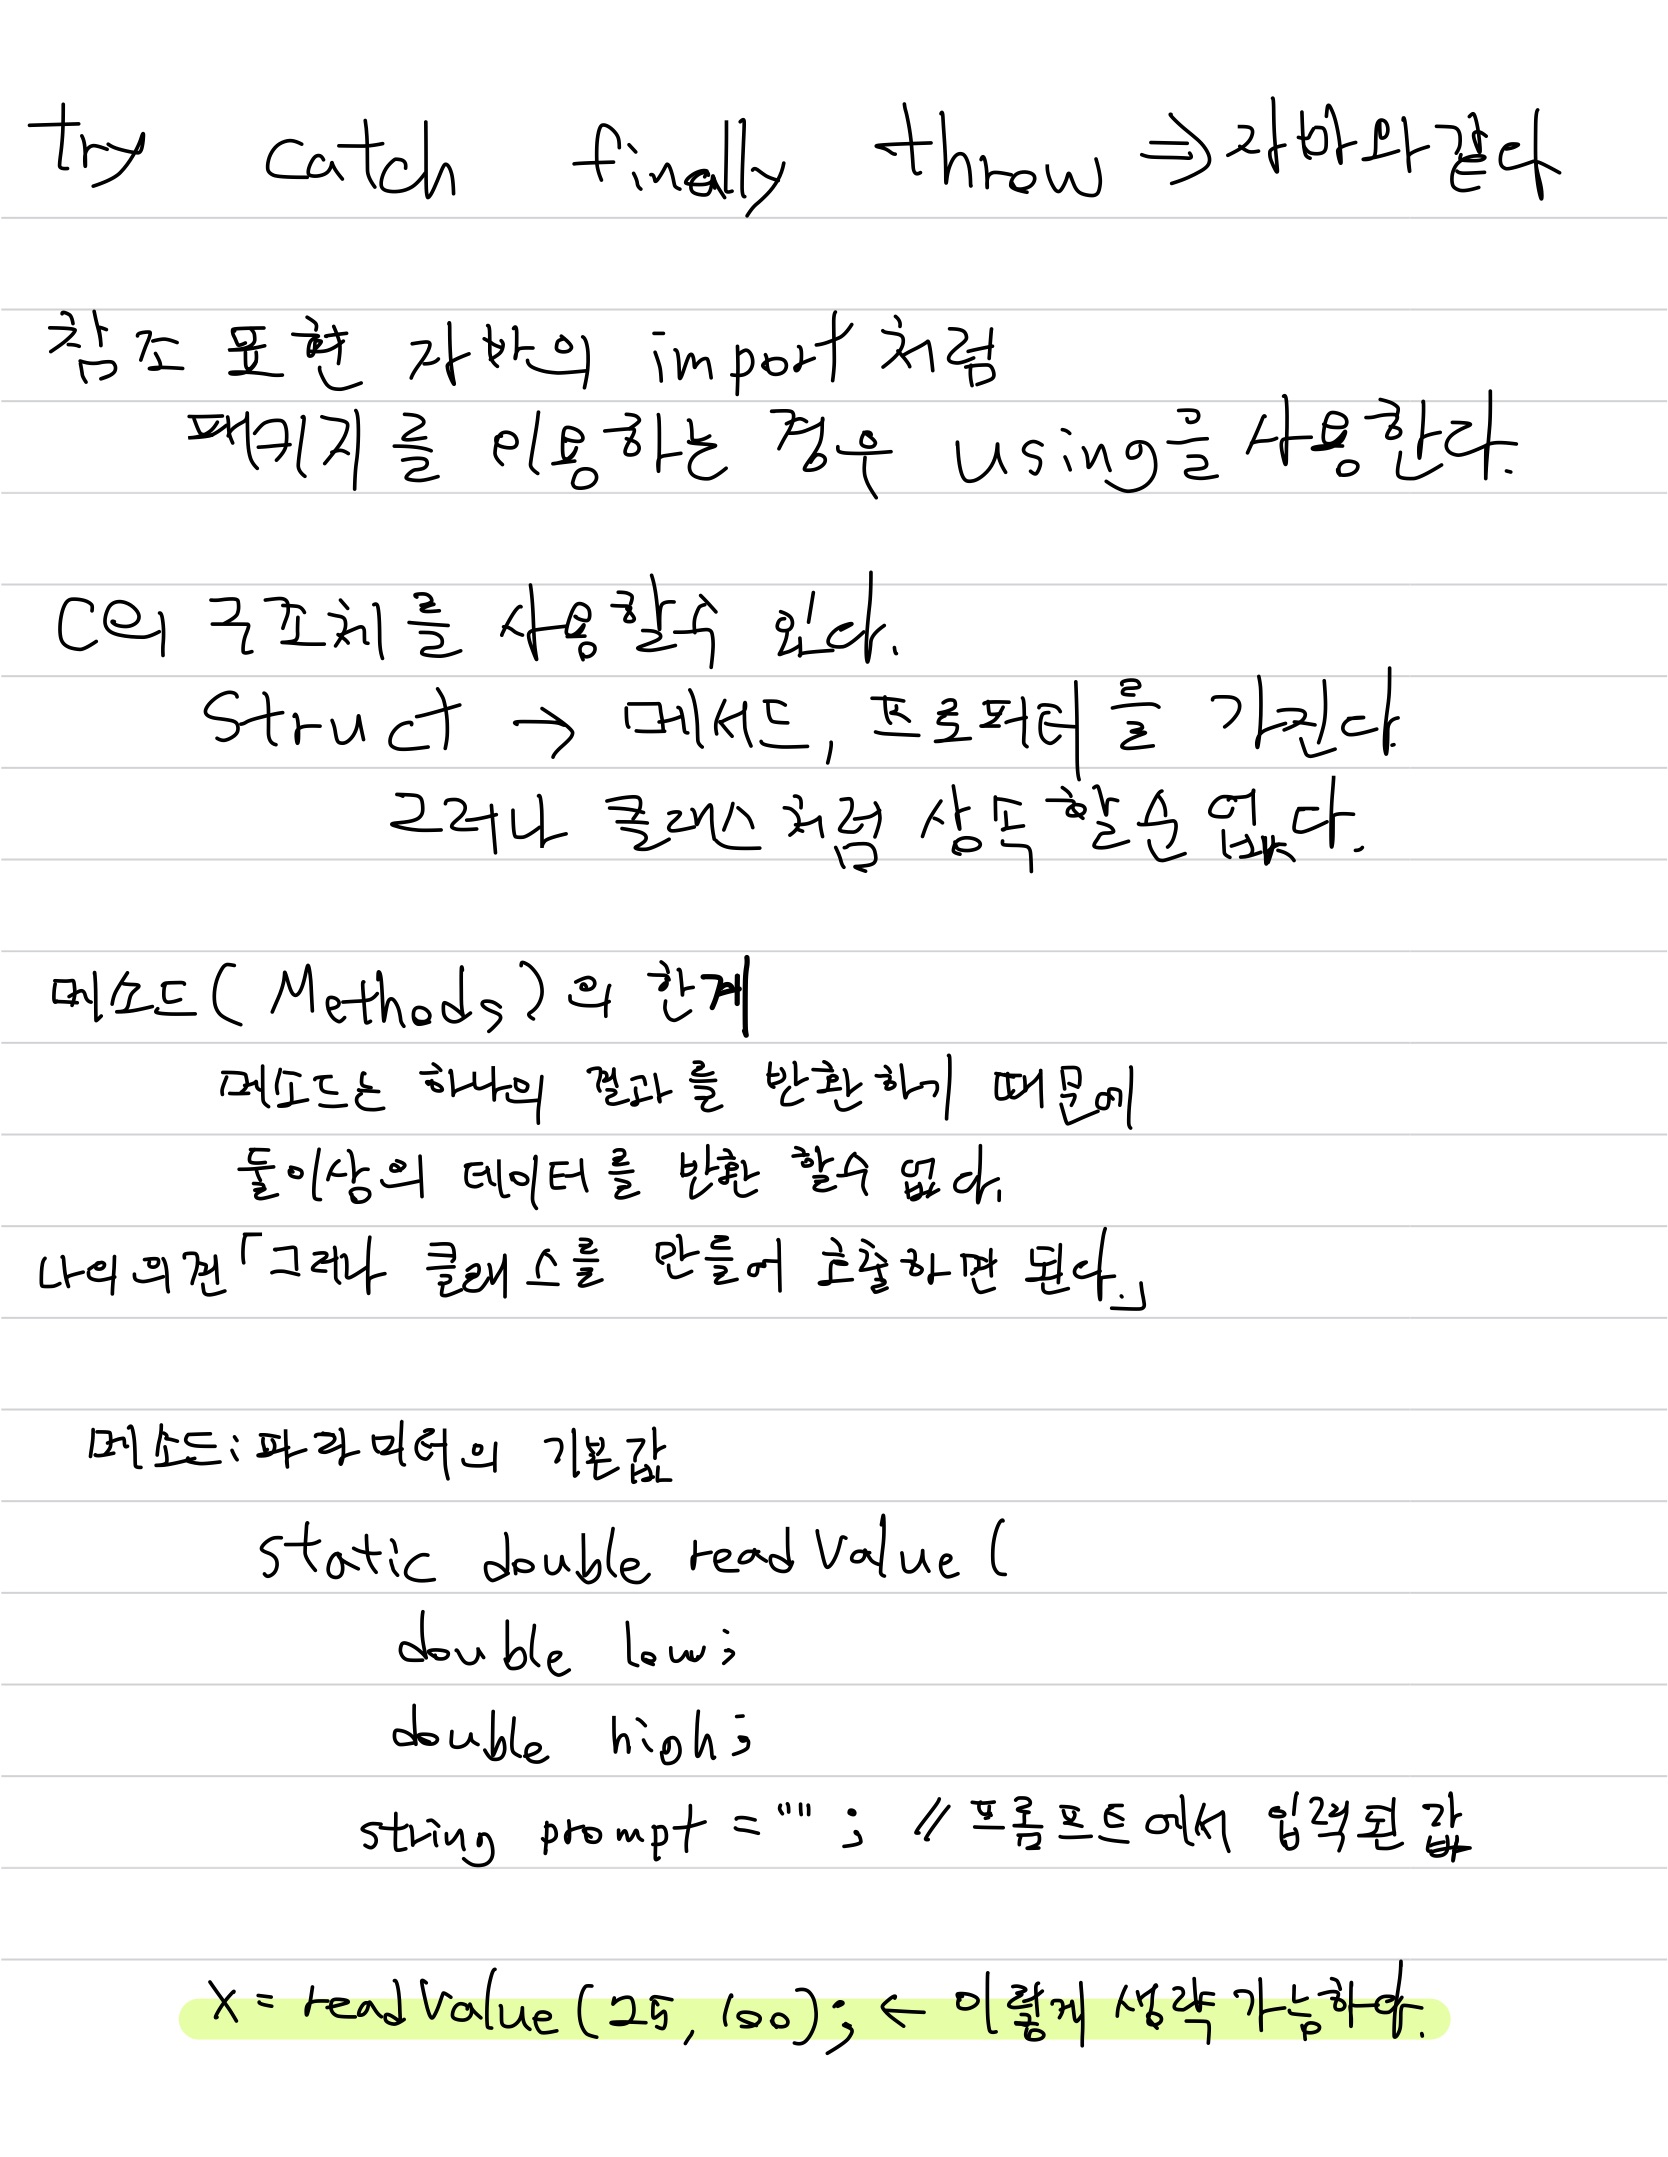 try catch finally throw ⇒ 자바와 같다
참조 표현 자바의 import 처럼
패키지를 이용하는 경우 using을 사용한다.
C의 구조체를 사용할수 있다.
Struct → 메서드, 프로퍼티를 가진다.
그러나 클래스처럼 상속할순 없다.
메소드(Methods)의 한계
메소드는 하나의 결과를 반환하기 때문에
둘이상의 데이터를 반환 할수 없다.
나의 의견「그러나 클래스를 만들어 호출하면 된다.」
메소드:파라미터의 기본값
static double readValue (
double low;
double high;
string prompt = "" ; // 프롬프트에서 입력된 값
x = readValue (25, 100); ← 이렇게 생략 가능하다.